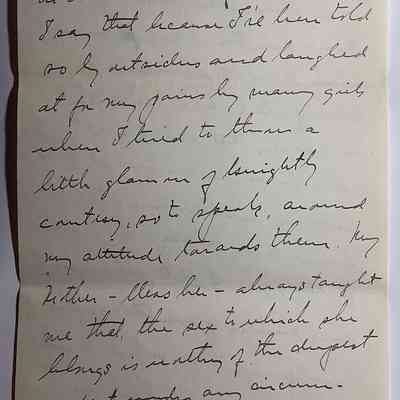 I say that because I've been told
so by outsiders and laughed
at for my pains by many girls
when I tried to throw a
little glamour of knightly
courtesy, so to speak, around
my attitude towards them. My
Mother - bless her - always taught
me that the sex to which she
belongs is worthy of the deepest
under any circum-